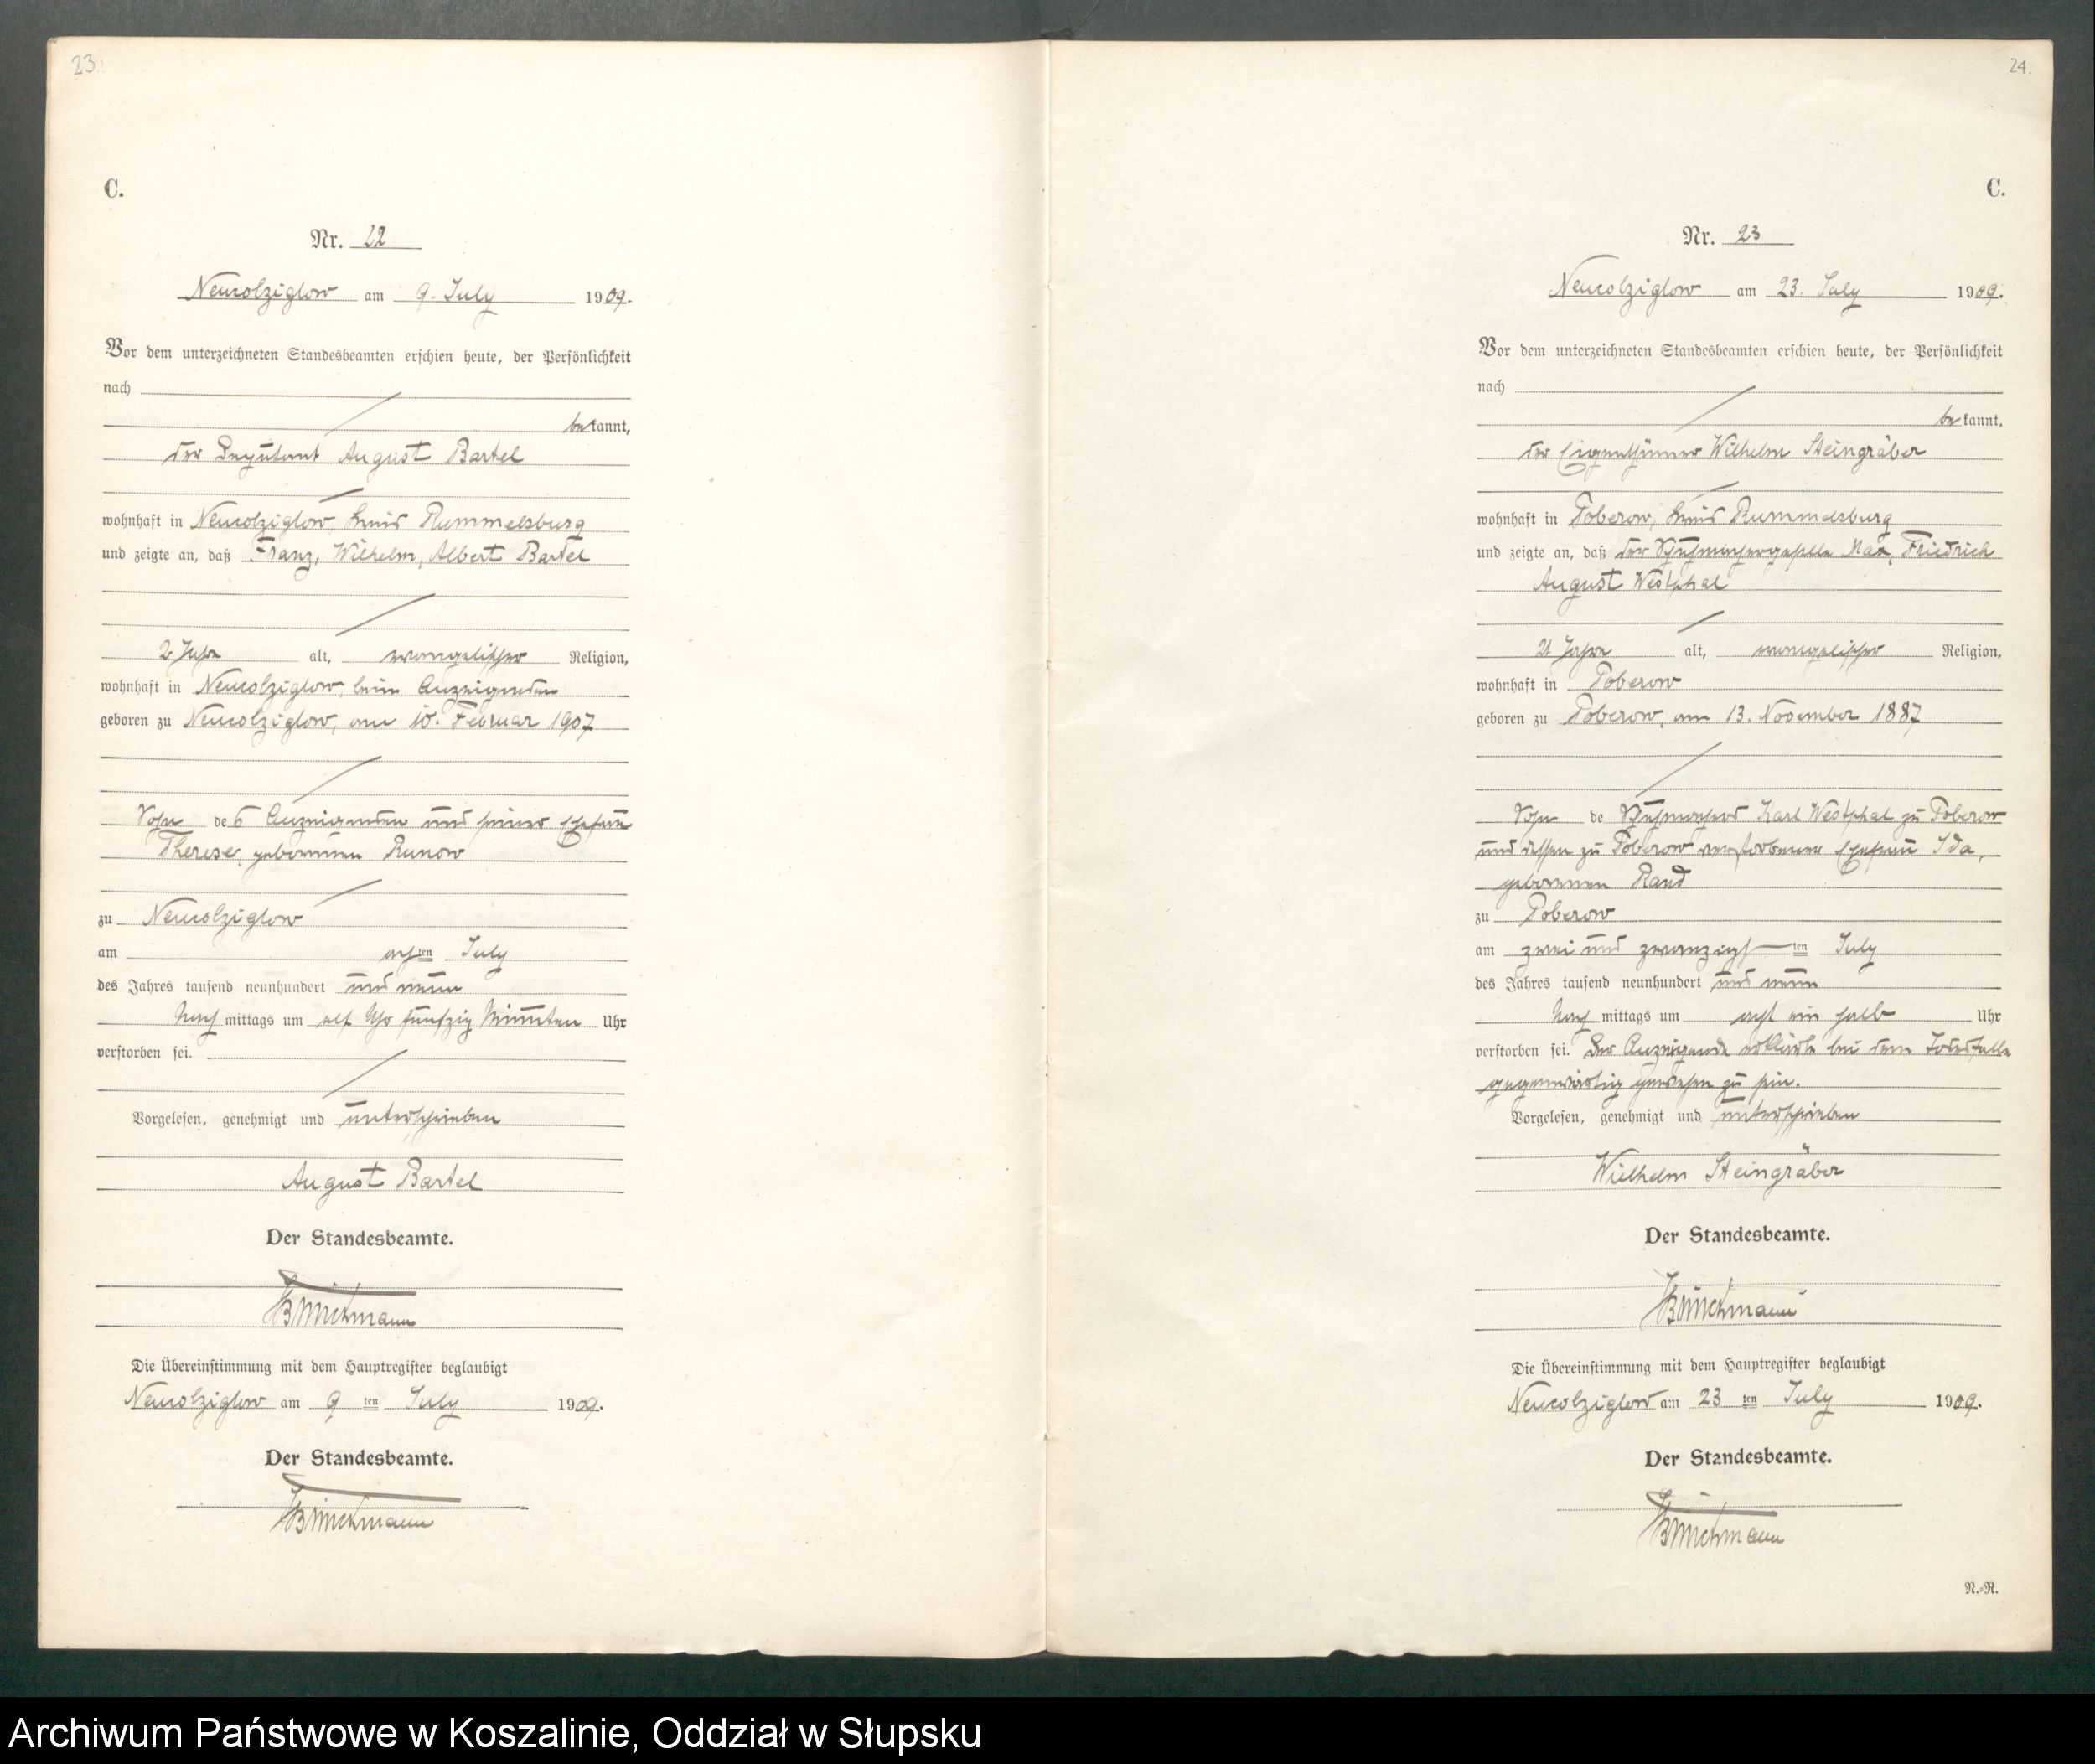 23.
C.
Nr. 22
Neukolziglow am 9. July 1909.
Vor dem unterzeichneten Standesbeamten erschien heute, der Persönlichkeit
nach
bekannt,
der Deputant August Bartel
wohnhaft in Neukolziglow, Kreis Rummelsburg
und zeigte an, daß Franz, Wilhelm, Albert Bartel
2 Jahre alt, evangelischer Religion,
wohnhaft in Neukolziglow, beim Anzeigenden
geboren zu Neukolziglow, am 10. Februar 1907
Sohn des Anzeigenden und seiner Ehefrau
Therese, geborenen Runow
zu Neukolziglow
am achten July
des Jahres tausend neunhundert und neun
Nachmittags um elf Uhr fünfzig Minuten Uhr
verstorben sei.
Vorgelesen, genehmigt und unterschrieben
August Bartel
Der Standesbeamte.
Brüchmann
Die Übereinstimmung mit dem Hauptregister beglaubigt
Neukolziglow am 9 ten July 1909.
Der Standesbeamte.
Brüchmann
24.
C.
Nr. 23
Neukolziglow am 23. July 1909.
Vor dem unterzeichneten Standesbeamten erschien heute, der Persönlichkeit
nach
bekannt,
der Eigenthümer Wilhelm Steingräber
wohnhaft in Poberow, Kreis Rummelsburg
und zeigte an, daß der Schuhmachergeselle Max, Friedrich
August Westphal
21 Jahre alt, evangelischer Religion,
wohnhaft in Poberow
geboren zu Poberow, am 13. November 1887
Sohn de Schuhmachers Karl Westphal zu Poberow
und dessen zu Poberow verstorbenen Ehefrau Ida,
geborenen Raud
zu Poberow
am zwei und zwanzigsten July
des Jahres tausend neunhundert und neun
Nachmittags um acht ein halb Uhr
verstorben sei. Der Anzeigende erklärte bei dem Todesfalle
gegenwärtig gewesen zu sein.
Vorgelesen, genehmigt und unterschrieben
Wilhelm Steingräber
Der Standesbeamte.
Brüchmann
Die Übereinstimmung mit dem Hauptregister beglaubigt
Neukolziglow am 23 ten July 1909.
Der Standesbeamte.
Brüchmann
N.=R.
Archiwum Państwowe w Koszalinie, Oddział w Słupsku